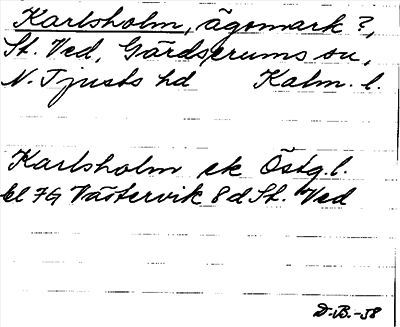 Karlsholm, ägomark?,
St. Ved, Gärdserums sn,
N. Tjusts hd Kalm. l.
Karlsholm ek Östg. l.
bl 74 Västervik 8 d St. Ved
D.-B.-58